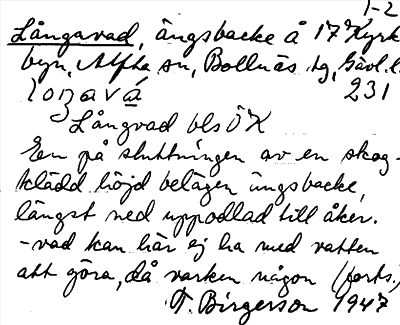 1-2
Långavad, ängsbacke å 17 Kyrk
byn, Alfta sn, Bollnäs tg, Gävl.l.
231
Långvad bls ÖK
En på sluttningen av en skog-
klädd höjd belägen ängsbacke,
längst ned uppodlad till åker.
-vad kan här ej ha med vatten
att göra, då varken någon (forts.)
T. Birgerson 1947